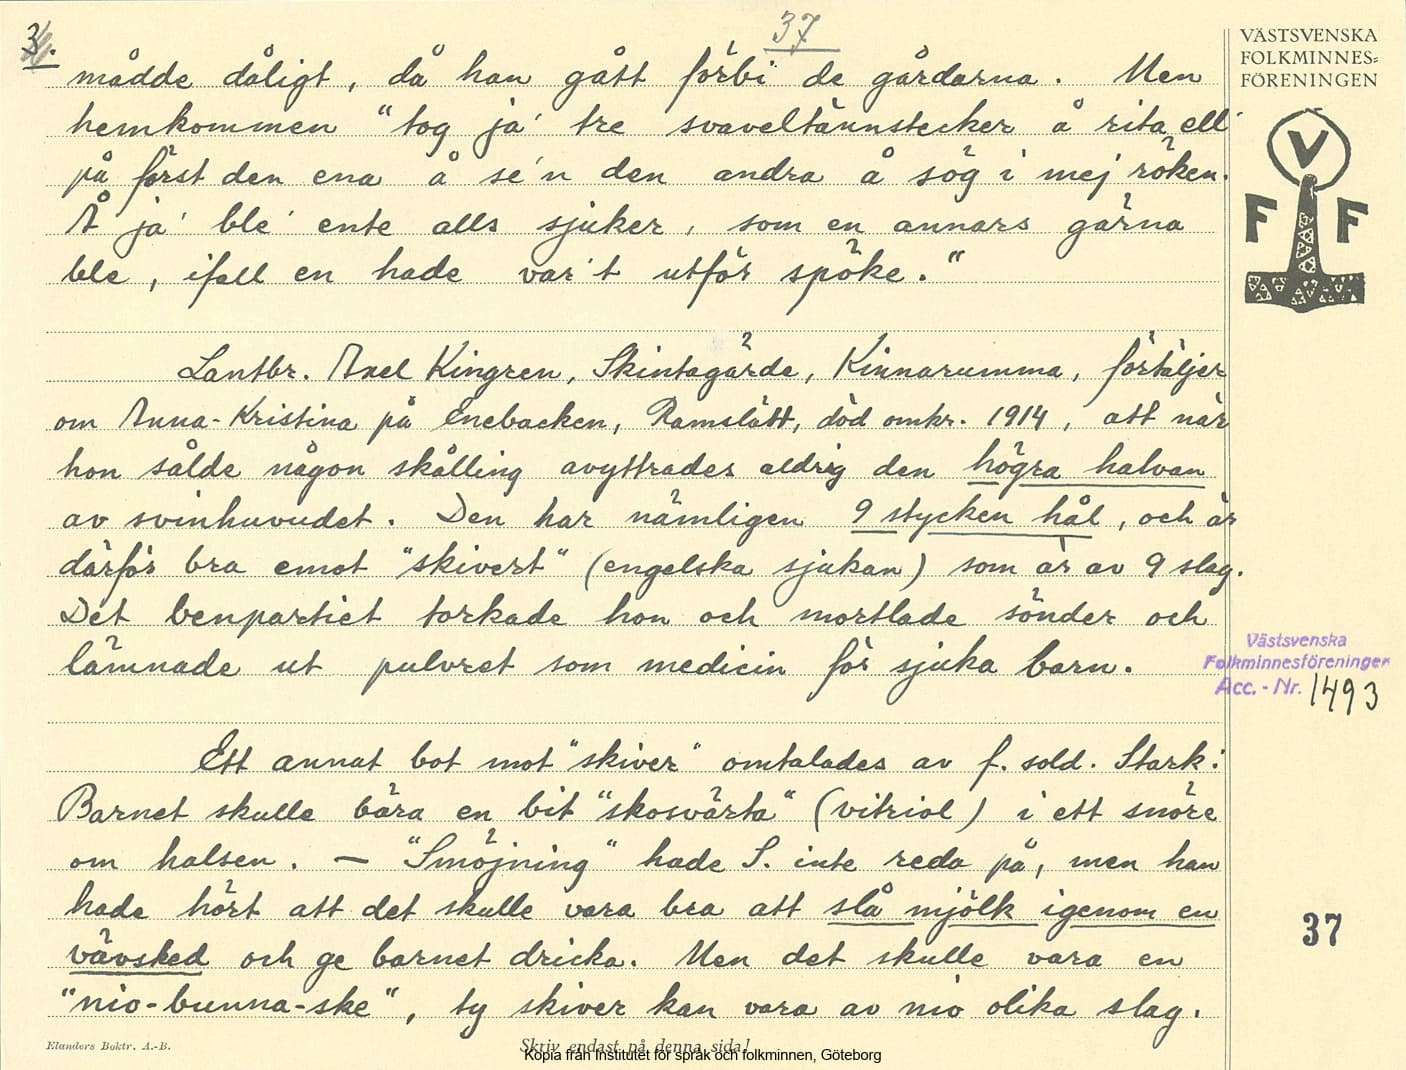 3.
37
mådde dåligt, då han gått förbi de gårdarna. Men
hemkommen "tog ja' tre svaveltännstecker å rita ell'
på först den ena å se'n den andra å sög i mej röken.
Å ja' ble' ente alls sjuker, som en annars gärna
ble, ifall en hade var't utför spöke."
Lantbr. Axel Kingren, Skintagärde, Kinnarumma, förtäljer
om Anna-Kristina på Enebacken, Ramslätt, död omkr. 1914, att när
hon sålde någon skålling avyttrades aldrig den högra halvan
av svinhuvudet. Den har nämligen 9 stycken hål, och är
därför bra emot "skivert" (engelska sjukan) som är av 9 slag.
Det benpartiet torkade hon och mortlade sönder och
lämnade ut pulvret som medicin för sjuka barn.
Ett annat bot mot "skiver" omtalades av f. sold. Stark:
Barnet skulle bära en bit "skosvärta" (vitriol) i ett snöre
om halsen. — "Smöjning" hade S. inte reda på, men han
hade hört att det skulle vara bra att slå mjölk igenom en
vävsked och ge barnet dricka. Men det skulle vara en
"nio-bunna-ske", ty skiver kan vara av nio olika slag.
Elanders Boktr. A.-B.
Skriv endast på denna sida!
Kopia från Institutet för språk och folkminnen, Göteborg
VÄSTSVENSKA
FOLKMINNES-
FÖRENINGEN
V
F F
Västsvenska
Folkminnesföreningen
Acc.-Nr. 1493
37